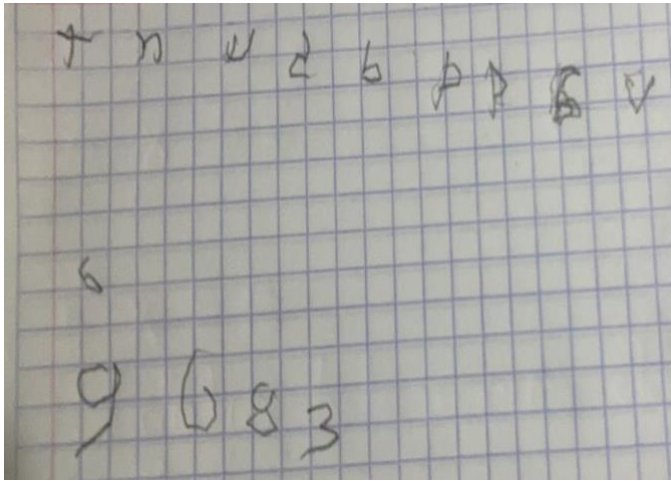 t n u d b p p v
6
9 6 8 3